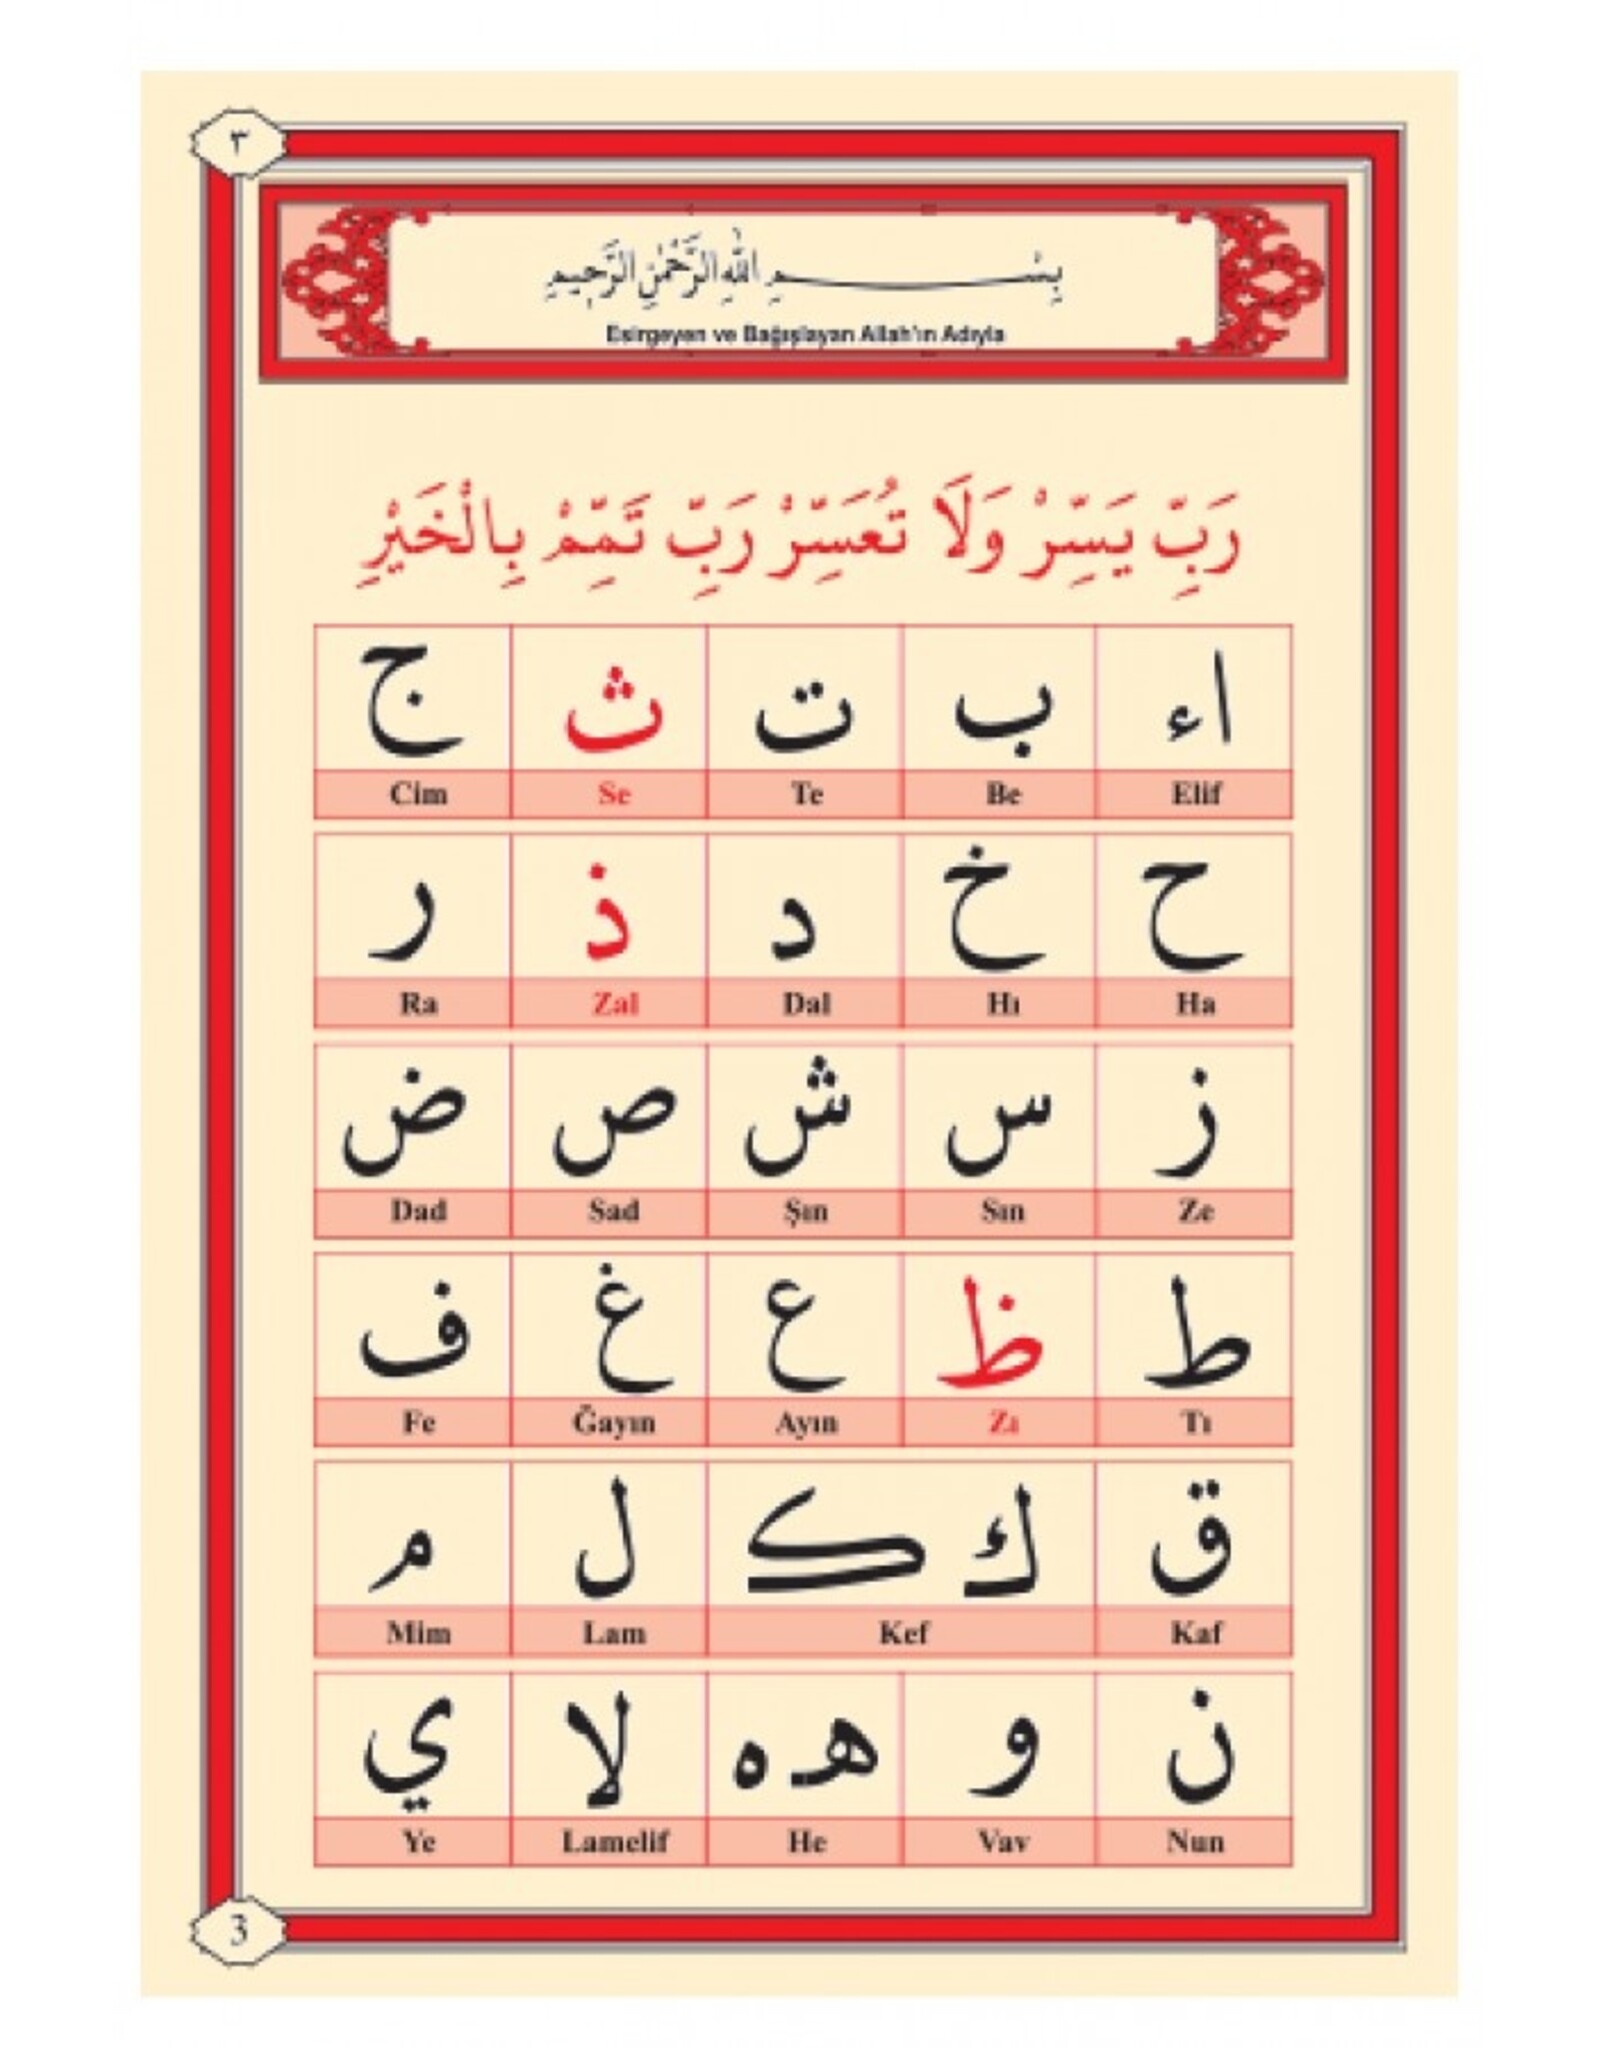 ٣
بِسْمِ اللّٰهِ الرَّحْمٰنِ الرَّحِيمِ
Esirgeyen ve Bağışlayan Allah'ın Adıyla
رَبِّ يَسِّرْ وَلَا تُعَسِّرْ رَبِّ تَمِّمْ بِالْخَيْرِ
اء ب ت ث ج
Elif Be Te Se Cim
ح خ د ذ ر
Ha Hı Dal Zal Ra
ز س ش ص ض
Ze Sın Şın Sad Dad
ط ظ ع غ ف
Tı Zı Ayın Ğayın Fe
ق ك ک ل م
Kaf Kef Lam Mim
ن و هـ ه لا ي
Nun Vav He Lamelif Ye
3